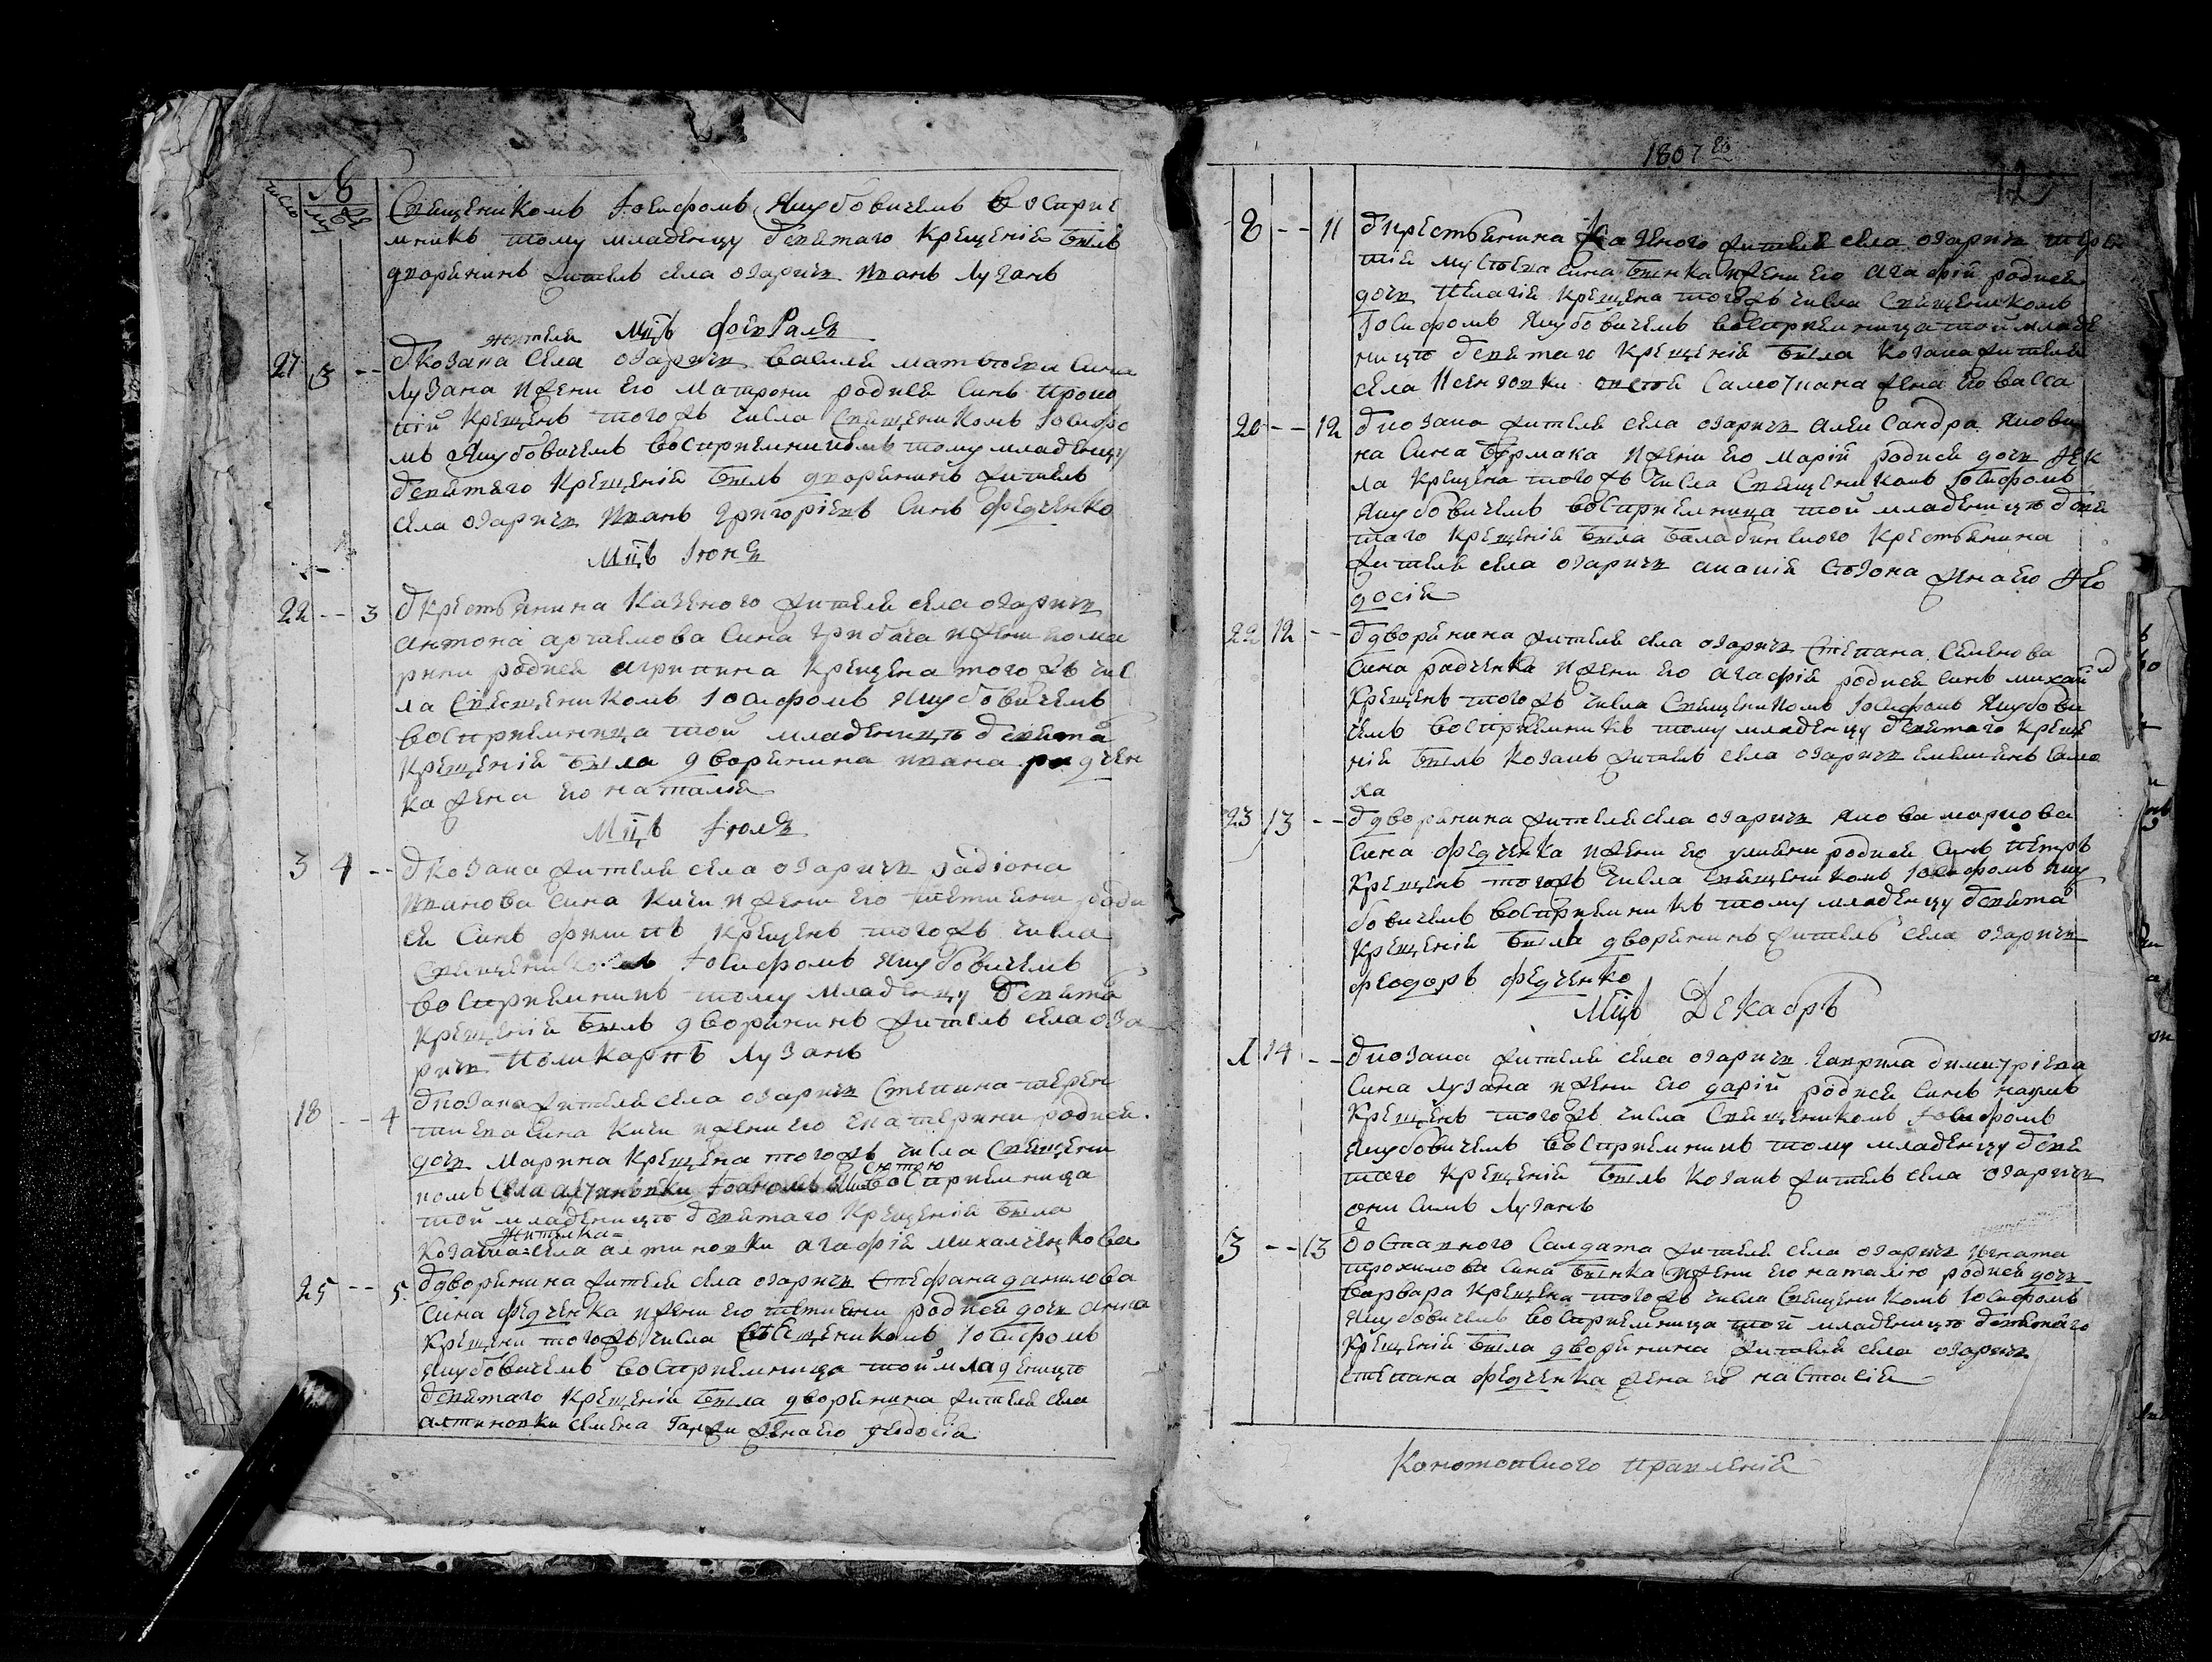 число
№
Священикомъ Іосифомъ Якубовичемъ Восприе
мникъ тому младенцу Святаго Крещенія билъ
дворянинъ житель села озаричъ Иванъ Лузанъ
Мцъ февраля
жителя
27 3 -- У козака села озаричъ Василя матвѣева сина
Лузана и жени его Матрони родися Синъ Проко
пій Крещенъ того жъ числа Священикомъ Іосифо
мъ Якубовичемъ Восприемникомъ тому младенцу
Святаго Крещенія билъ дворянинъ житель
села озаричъ Иванъ Григоріевъ Синъ Федченко
Мцъ Іюня
22 -- 3 У крестьянина Казеного жителя села озаричъ
антона артемова Сина Грибача и жени его ма
рини родися агрипина Крещена того жъ чис
ла Священикомъ Іосифомъ Якубовичемъ
Восприемница той младенице Святаго
Крещенія била дворянина Ивана радчен
ка жена его наталія
Мцъ Іюля
3 4 -- У козака жителя села озаричъ радіона
Иванова Сина Кичи и жени его роди
ся Синъ филипъ Крещенъ того жъ числа
Священикомъ Іосифомъ Якубовичемъ
Восприемникъ тому Младенцу Святаго
Крещенія билъ дворянинъ житель села оза
ричъ Поликарпъ Лузанъ
18 -- 4 У козака жителя села озаричъ Степана терен
тиева сина Кичи и жени его Екатерини родися
дочъ Марина Крещена того жъ числа Священи
комъ Села алтиновки Іоаномъ Восприемница
той младенице Святаго Крещенія била
Жителка
Козачка села алтиновки агафія Михалченкова
25 -- 5 У дворянина жителя села озаричъ Стефана данилова
Сина Федченка и жени его родися дочъ анна
Крещена того жъ числа Священикомъ Іосифомъ
Якубовичемъ Восприемница той младенице
Святаго Крещенія била дворянина жителя села
алтиновки Семена жена его феодосія
1807 го
12
8 -- 11 У крестьянина Казеного жителя села озаричъ
сина Бинка и жени его агафіи родися
дочъ Пелагія Крещена того жъ числа Священикомъ
Іосифомъ Якубовичемъ Восприемница той младе
нице Святаго Крещенія била Козака жителя
села жена его васса
20 -- 12 У козака жителя села озаричъ александра Якови
на Сина Бурмака и жени его Маріи родися дочъ Фек
ла Крещена того жъ числа Священикомъ Іосифомъ
Якубовичемъ Восприемница той младенице Свя
таго Крещенія била Крестьянина
жителя села озаричъ жена его Фео
досія
22 12 -- У дворянина жителя села озаричъ Степана Семенова
Сина радченка и жени его агафіи родися Синъ михаил
Крещенъ того жъ числа Священикомъ Іосифомъ Якубови
чемъ Восприемникъ тому младенцу Святаго Креще
нія билъ Козакъ житель села озаричъ
ха
23 13 -- У дворянина жителя села озаричъ Якова маркова
Сина Федченка и жени его улияни родися Синъ Петръ
Крещенъ того жъ числа Священикомъ Іосифомъ Яку
бовичемъ Восприемникъ тому младенцу Святаго
Крещенія билъ дворянинъ житель села озаричъ
феодоръ федченко
Мцъ Декабръ
1 14 -- У козака жителя села озаричъ Гаврила димитріева
Сина Лузана и жени его даріи родися Синъ наумъ
Крещенъ того жъ числа Священикомъ Іосифомъ
Якубовичемъ Восприемникъ тому младенцу Свя
таго Крещенія билъ Козакъ житель села озаричъ
онисимъ Лузанъ
3 -- 13 У отставного Салдата жителя села озаричъ Игната
трохимова сина Бинка и жени его наталію родися дочъ
Варвара Крещена того жъ числа Священикомъ Іосифомъ
Якубовичемъ Восприемница той младенице Святаго
Крещенія била дворянина жителя села озаричъ
степана федченка жена его настасія
Конотопского правленія